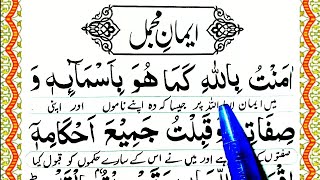 ایمان مجمل
اٰمَنْتُ بِاللّٰهِ كَمَا هُوَ بِاَسْمَآئِهٖ وَ
میں ایمان اللہ پر جیسا کہ وہ اپنے ناموں اور اپنی
صِفَاتِهٖ وَقَبِلْتُ جَمِيْعَ اَحْكَامِهٖ
صفتوں کے اور میں نے اس کے سارے حکموں کو قبول کیا